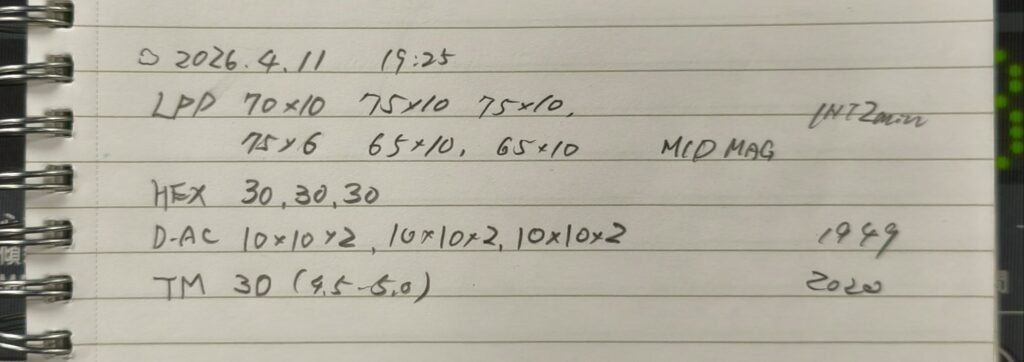 ○ 2026.4.11 19:25
LPD 70×10 75×10 75×10, INT2min
75×6 65×10, 65×10 MID MAG
HEX 30, 30, 30
D-AC 10×10×2, 10×10×2, 10×10×2 1949
TM 30 (4.5-5.0) 2020